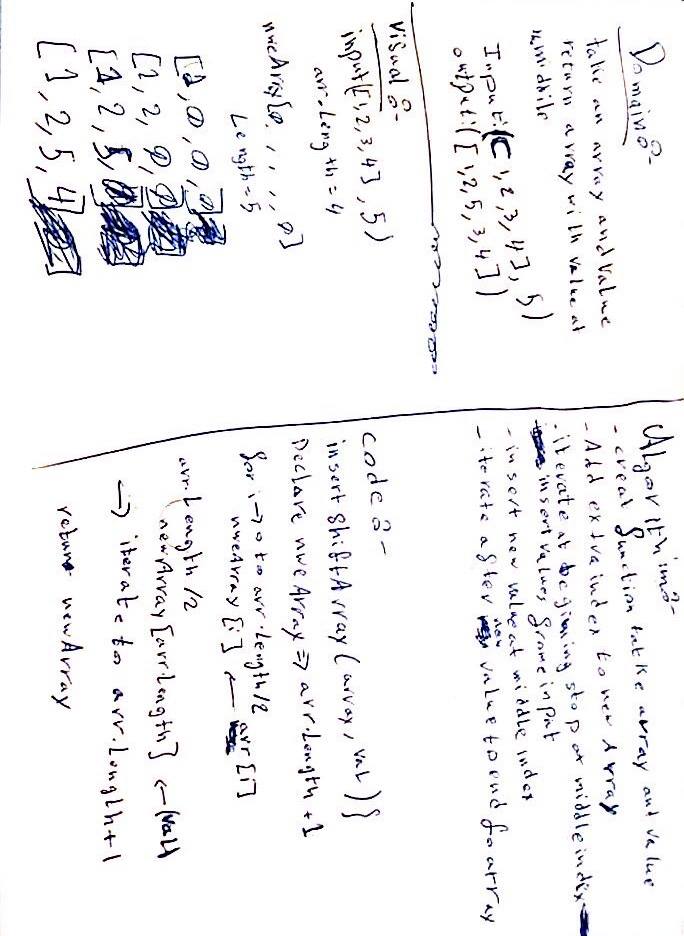 Domain:-
take an array and value
return array with value at
middile
Input:([1,2,3,4], 5)
output:([1,2,5,3,4])
Visual :-
input([1,2,3,4], 5)
arr.Length = 4
nweArry[0, , , , 0]
Length = 5
[1, 0, 0, 0]
[1, 2, 0, 0]
[1, 2, 5, 0]
[1, 2, 5, 4]
Algorithim:-
- creat function tatke array and value
- Add extra index to new Array
- iterate at begining stop at middle index
insert values frome input
- insert new value at middle index
- iterate after new value to end fo array
code :-
insert ShiftArray (array, val) }
Declare nwe Array => arr.Length +1
for i → 0 to arr.Length/2
nweArray [i] ← arr [i]
arr.Length /2
newArray [arr.Length] ← (val)
→ iterate to arr.Length+1
return newArray